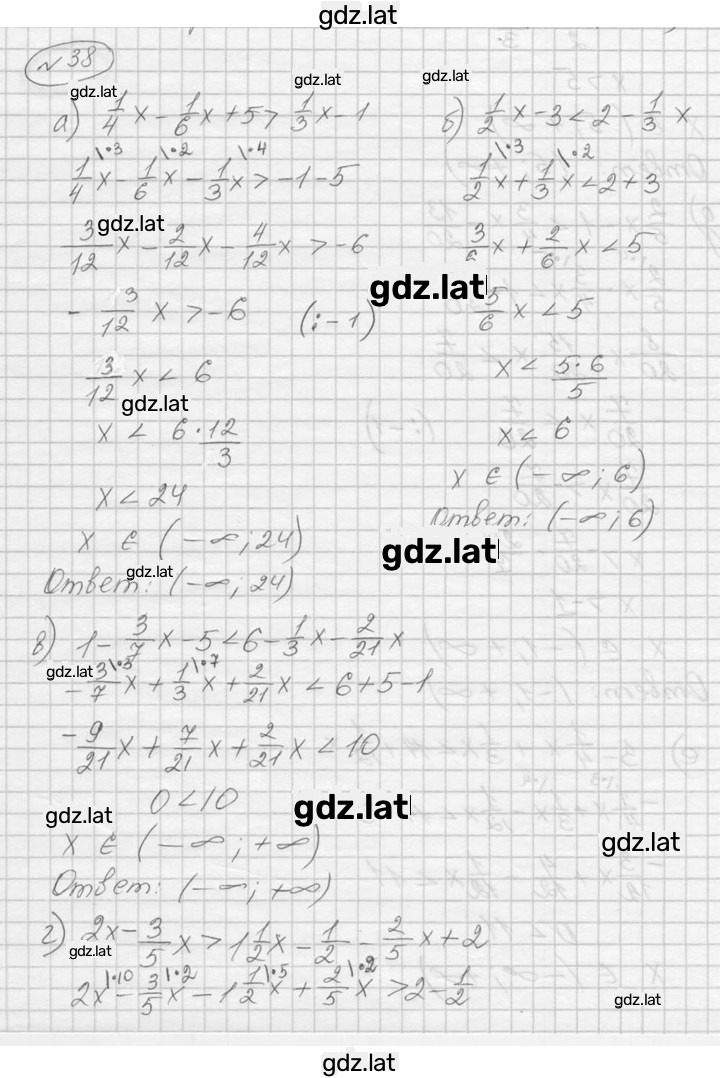 gdz.lat
№ 38
gdz.lat gdz.lat gdz.lat
а) 1/4 x - 1/6 x + 5 > 1/3 x - 1
1/4 x \·3 - 1/6 x \·2 - 1/3 x \·4 > -1 - 5
gdz.lat
3/12 x - 2/12 x - 4/12 x > -6
- 3/12 x > -6 (: -1)
3/12 x < 6
gdz.lat
x < 6·12/3
x < 24
x ∈ (-∞; 24)
gdz.lat
Ответ: (-∞; 24)
б) 1/2 x - 3 < 2 - 1/3 x
1/2 x \·3 + 1/3 x \·2 < 2 + 3
3/6 x + 2/6 x < 5
gdz.lat
5/6 x < 5
x < 5·6/5
x < 6
x ∈ (-∞; 6)
Ответ: (-∞; 6)
gdz.lat
в) 1 - 3/7 x - 5 < 6 - 1/3 x - 2/21 x
gdz.lat
- 3/7 x \·3 + 1/3 x \·7 + 2/21 x < 6 + 5 - 1
- 9/21 x + 7/21 x + 2/21 x < 10
0 < 10
gdz.lat gdz.lat
x ∈ (-∞; +∞)
gdz.lat
Ответ: (-∞; +∞)
г) 2x - 3/5 x > 1 1/2 x - 1/2 - 2/5 x + 2
gdz.lat
2x \·10 - 3/5 x \·2 - 1 1/2 x \·5 + 2/5 x \·2 > 2 - 1/2
gdz.lat
gdz.lat